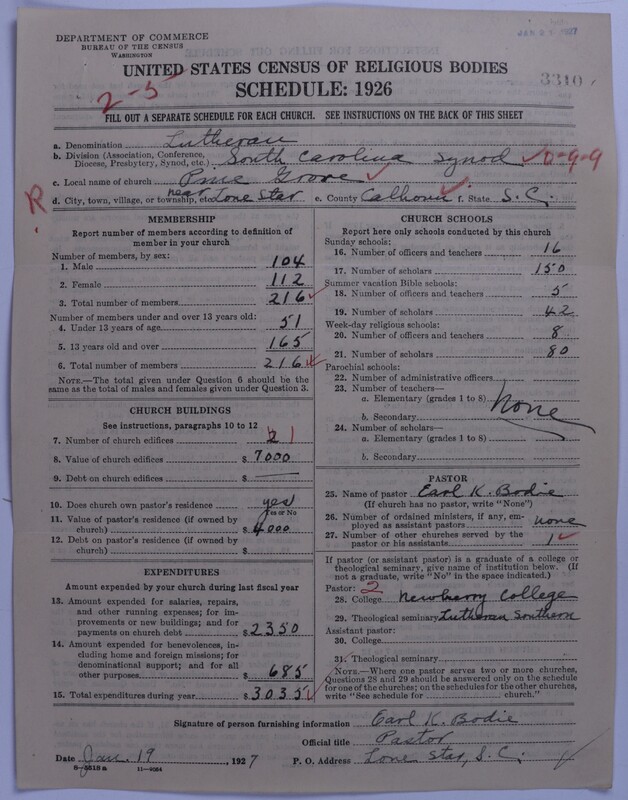 JAN 21 1927
DEPARTMENT OF COMMERCE
BUREAU OF THE CENSUS
WASHINGTON
UNITED STATES CENSUS OF RELIGIOUS BODIES
SCHEDULE: 1926
3310
2-5
FILL OUT A SEPARATE SCHEDULE FOR EACH CHURCH. SEE INSTRUCTIONS ON THE BACK OF THIS SHEET
a. Denomination Lutheran
b. Division (Association, Conference, Diocese, Presbytery, Synod, etc.) South Carolina Synod 0-9-9
c. Local name of church Pine Grove
R
d. City, town, village, or township, etc. near Lone Star e. County Calhoun f. State S.C.
MEMBERSHIP
Report number of members according to definition of
member in your church
Number of members, by sex:
1. Male 104
2. Female 112
3. Total number of members 216
Number of members under and over 13 years old:
4. Under 13 years of age 51
5. 13 years old and over 165
6. Total number of members 216
NOTE.—The total given under Question 6 should be
same as the total of males and females given under Question 3.
CHURCH BUILDINGS
See instructions, paragraphs 10 to 12
7. Number of church edifices 2 1
8. Value of church edifices $ 7000
9. Debt on church edifices $
10. Does church own pastor's residence yes
Yes or No
11. Value of pastor's residence (if owned by
church) $ 4000
12. Debt on pastor's residence (if owned by
church) $
EXPENDITURES
Amount expended by your church during last fiscal year
13. Amount expended for salaries, repairs,
and other running expenses; for im-
provements or new buildings; and for
payments on church debt $ 2350
14. Amount expended for benevolences, in-
cluding home and foreign missions; for
denominational support; and for all
other purposes $ 685
15. Total expenditures during year $ 3035
CHURCH SCHOOLS
Report here only schools conducted by this church
Sunday schools:
16. Number of officers and teachers 16
17. Number of scholars 150
Summer vacation Bible schools:
18. Number of officers and teachers 5
19. Number of scholars 42
Week-day religious schools:
20. Number of officers and teachers 8
21. Number of scholars 80
Parochial schools:
22. Number of administrative officers
23. Number of teachers—
a. Elementary (grades 1 to 8) None
b. Secondary
24. Number of scholars—
a. Elementary (grades 1 to 8)
b. Secondary
PASTOR
25. Name of pastor Earl K. Bodie
(If church has no pastor, write "None")
26. Number of ordained ministers, if any, em-
ployed as assistant pastors none
27. Number of other churches served by the
pastor or his assistants 1
If pastor (or assistant pastor) is a graduate of a college or
theological seminary, give name of institution below. (If
not a graduate, write "No" in the space indicated.)
Pastor: 2
28. College Newberry College
29. Theological seminary Lutheran Southern
Assistant pastor:
30. College
31. Theological seminary
NOTE.—Where one pastor serves two or more churches,
Questions 28 and 29 should be answered only on the schedule
for one of the churches; on the schedules for the other churches,
write "See schedule for church."
Signature of person furnishing information Earl K. Bodie
Official title Pastor
Date Jan. 19, 1927 P. O. Address Lone Star, S.C.
8-5318a 11-9064